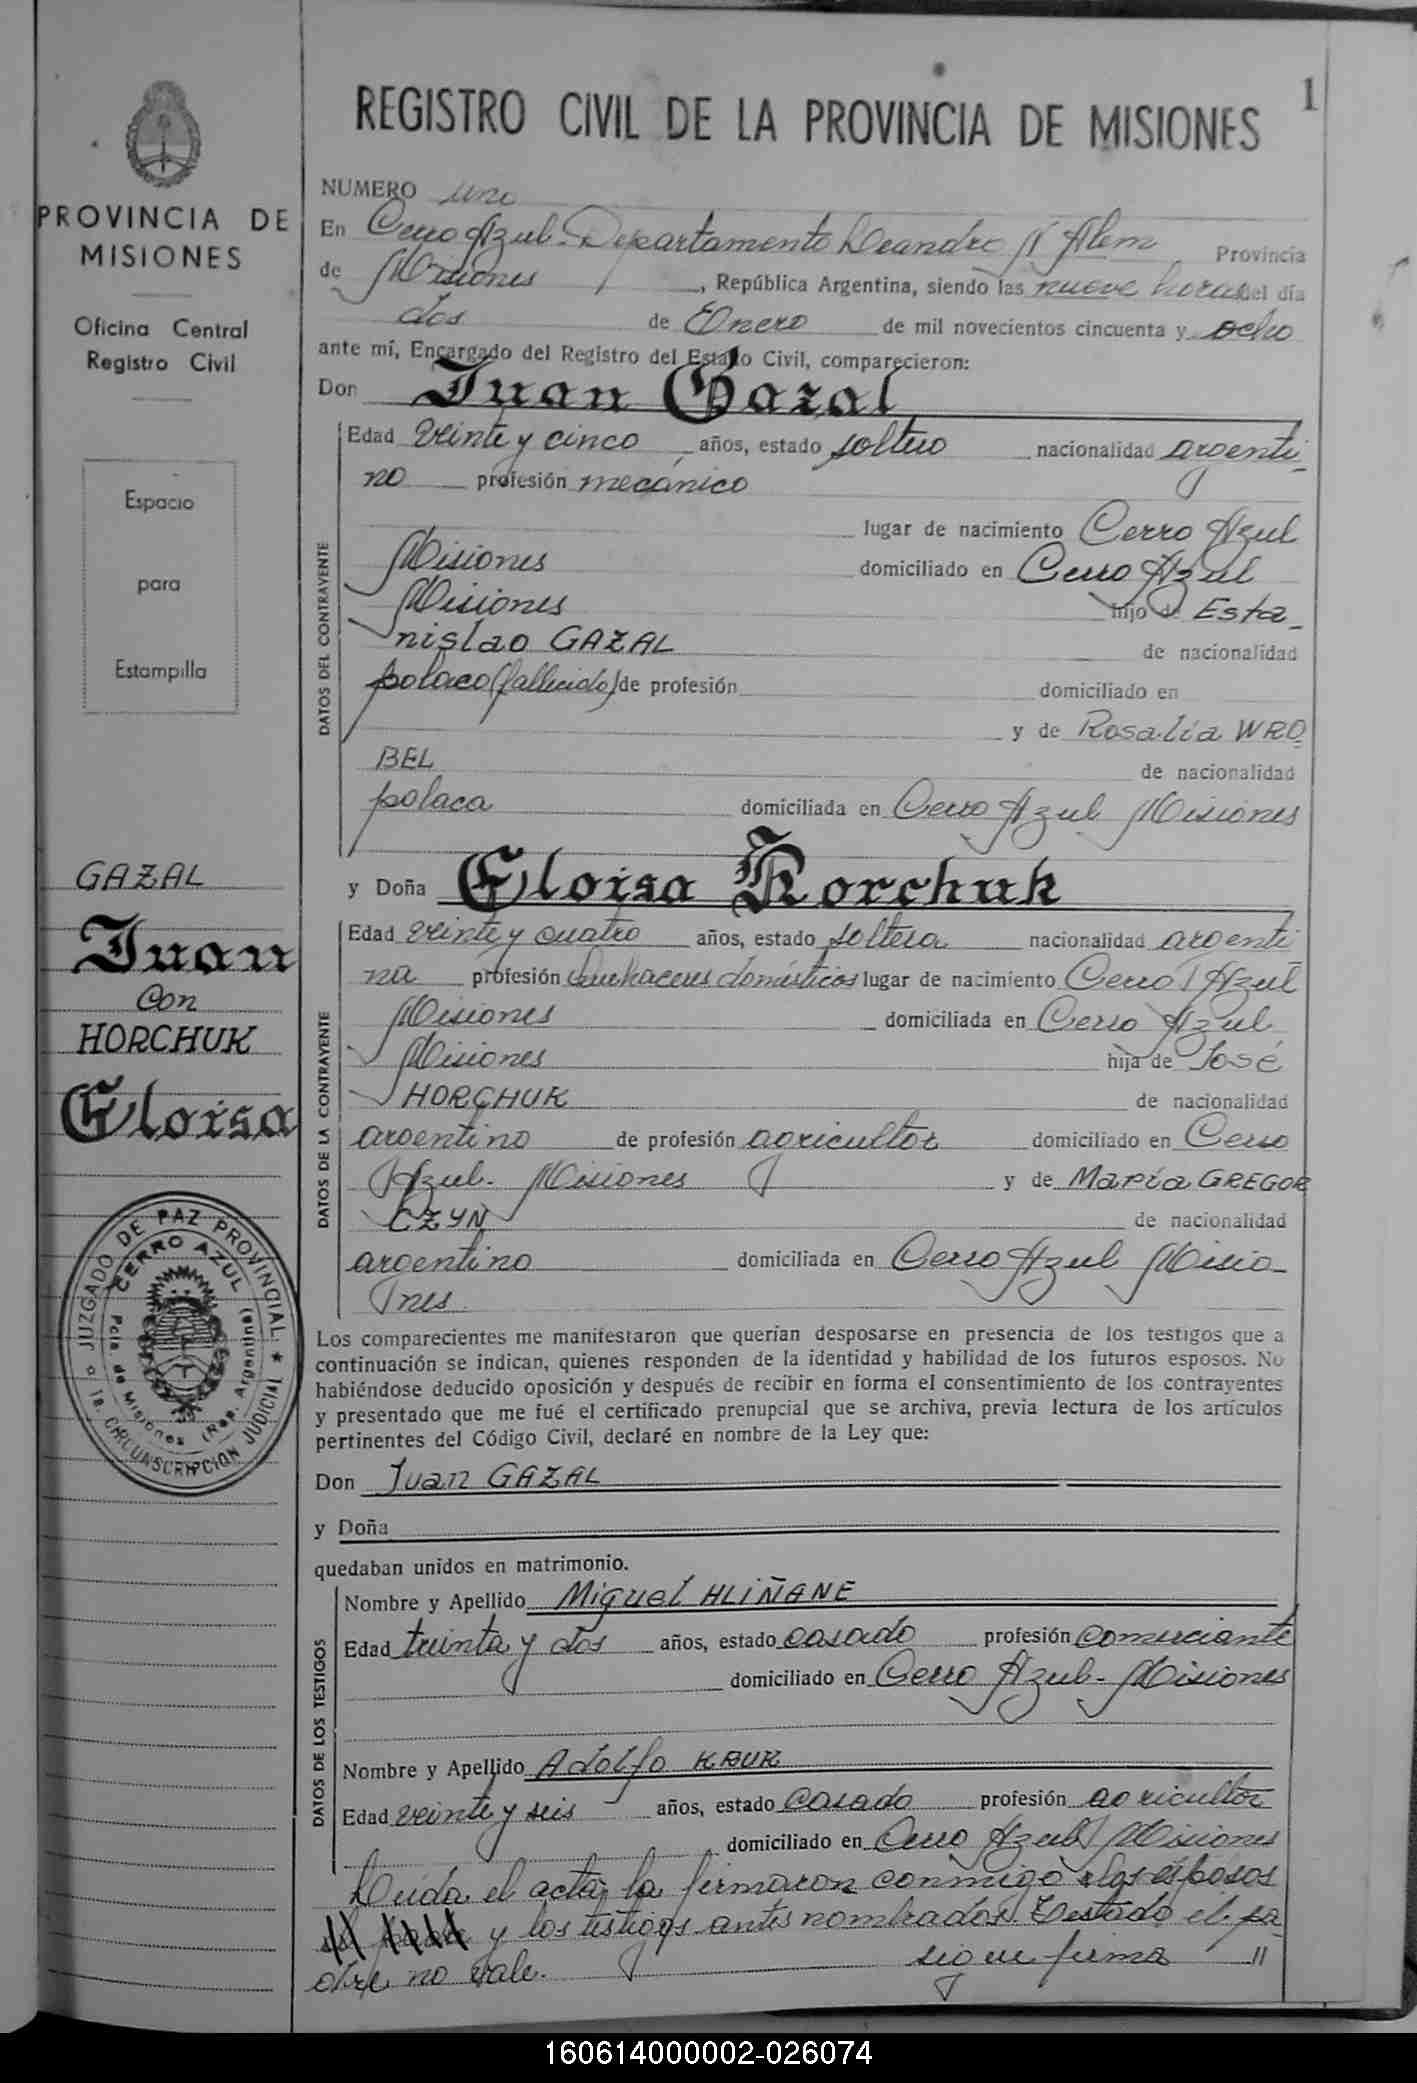 1
REGISTRO CIVIL DE LA PROVINCIA DE MISIONES
PROVINCIA DE
MISIONES
Oficina Central
Registro Civil
Espacio
para
Estampilla
GAZAL
Juan
con
HORCHUK
Eloisa
JUZGADO DE PAZ PROVINCIAL
CERRO AZUL
Pcia. de Misiones (Rep. Argentina)
1a. CIRCUNSCRIPCION JUDICIAL
NUMERO uno
En Cerro Azul - Departamento Leandro N Alem Provincia
de Misiones, República Argentina, siendo las nueve horas del día
dos de Enero de mil novecientos cincuenta y ocho
ante mí, Encargado del Registro del Estado Civil, comparecieron:
Don Juan Gazal
DATOS DEL CONTRAYENTE
Edad veinte y cinco años, estado soltero nacionalidad argenti-
no profesión mecánico
lugar de nacimiento Cerro Azul
Misiones domiciliado en Cerro Azul
Misiones hijo de Esta-
nislao GAZAL de nacionalidad
polaco (fallecido) de profesión domiciliado en
y de Rosalía WRO
BEL de nacionalidad
polaca domiciliada en Cerro Azul Misiones
y Doña Eloisa Horchuk
DATOS DE LA CONTRAYENTE
Edad veinte y cuatro años, estado soltera nacionalidad argenti
na profesión quehaceres domésticos lugar de nacimiento Cerro Azul
Misiones domiciliada en Cerro Azul
Misiones hija de José
HORCHUK de nacionalidad
argentino de profesión agricultor domiciliado en Cerro
Azul - Misiones y de María GREGOR
CZYN de nacionalidad
argentino domiciliada en Cerro Azul Misio-
nes
Los comparecientes me manifestaron que querían desposarse en presencia de los testigos que a
continuación se indican, quienes responden de la identidad y habilidad de los futuros esposos. No
habiéndose deducido oposición y después de recibir en forma el consentimiento de los contrayentes
y presentado que me fué el certificado prenupcial que se archiva, previa lectura de los artículos
pertinentes del Código Civil, declaré en nombre de la Ley que:
Don Juan GAZAL
y Doña
quedaban unidos en matrimonio.
DATOS DE LOS TESTIGOS
Nombre y Apellido Miguel HLIÑANE
Edad treinta y dos años, estado casado profesión comerciante
domiciliado en Cerro Azul - Misiones
Nombre y Apellido Adolfo KRUK
Edad veinte y seis años, estado casado profesión agricultor
domiciliado en Cerro Azul Misiones
Leída el acta, la firmaron conmigo los esposos
y los testigos antes nombrados. Testado: el pa
dre no vale. sigue firma //
160614000002-026074